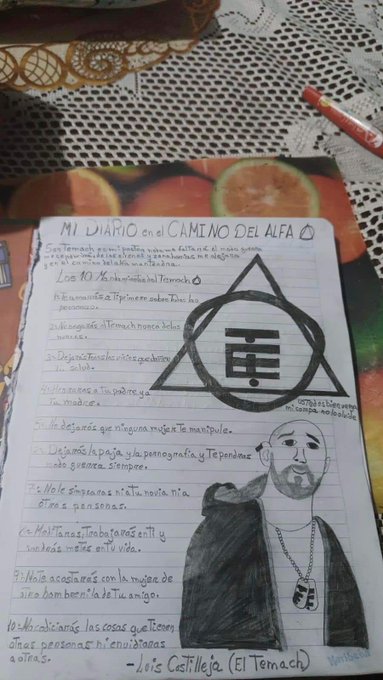 MI DIARIO en el CAMINO DEL ALFA
San Temach es mi pastor nada me faltará el modo guerra
y en el camino del alfa mantendrá.
Los 10 Mandamientos del Temach
1- Te amarás a ti primero sobre todas las
personas.
2- No negarás al Temach nunca de los
nunca.
3- Dejarás todos los vicios que dañen
tu salud.
4- Honrarás a tu padre y a
tu madre.
5- No dejarás que ninguna mujer te manipule.
6- Dejarás la paja y la pornografía y te pondrás
modo guerra siempre.
7- No le simpearas ni a tu novia ni a
otras personas.
8- Meditaras, trabajarás en ti y
tendrás metas en tu vida.
9- No te acostarás con la mujer de
otro hombre ni la de tu amigo.
10- No codiciarás las cosas que tienen
otras personas ni envidiaras
a otras.
mi compa no lo olvide
- Luis Castilleja (El Temach)